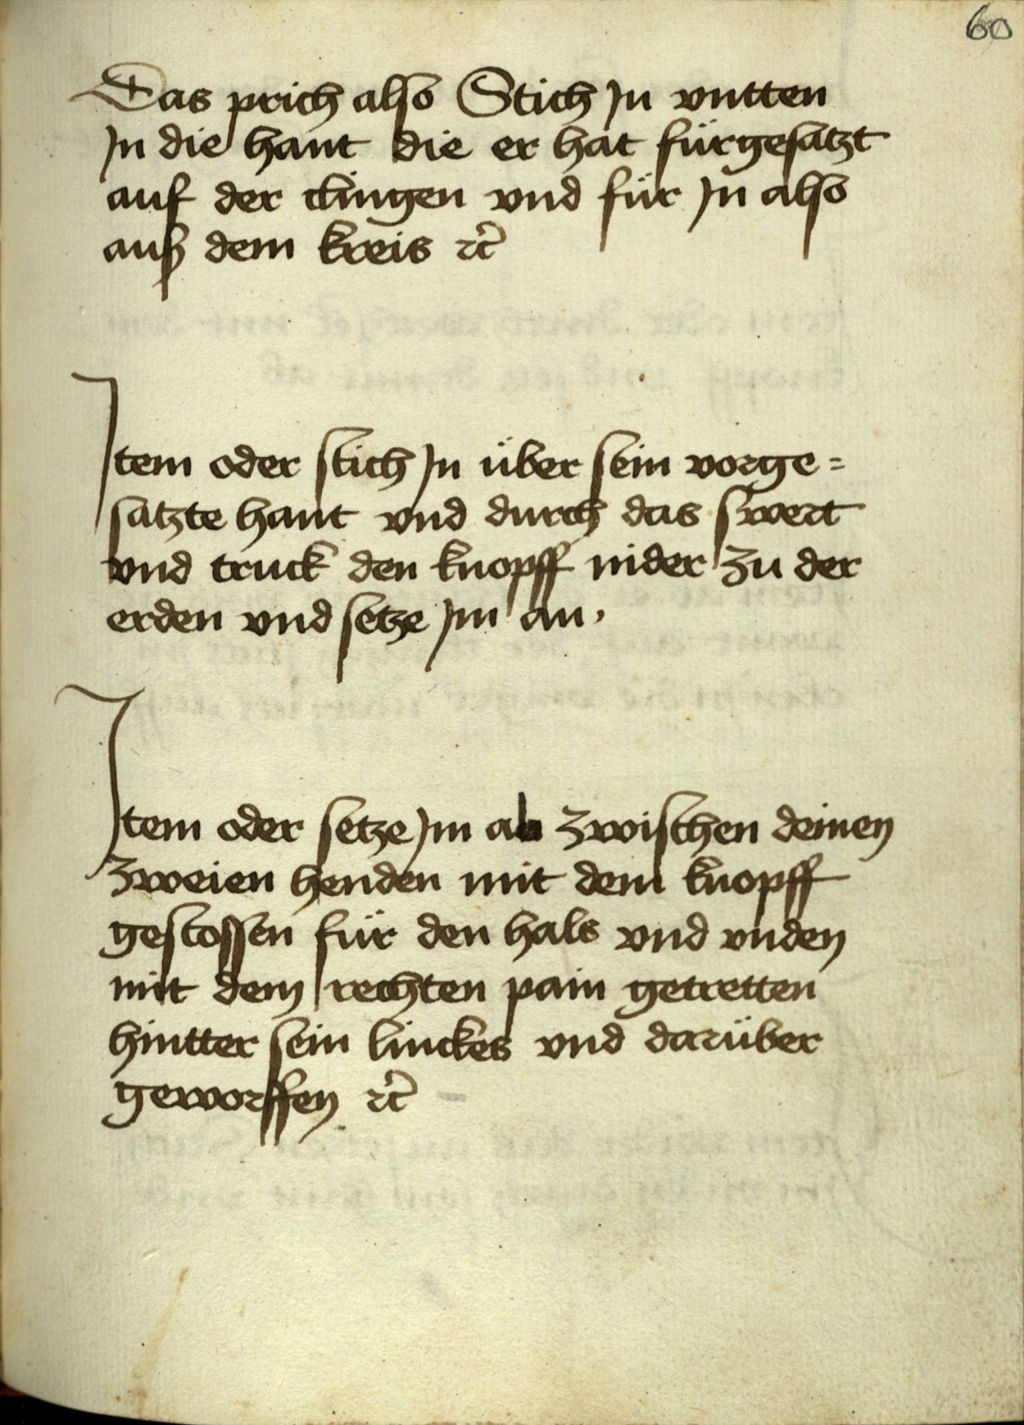 60
Das prich also Stich Jn vntten
Jn die hant die er hat fürgesatzt
auf der clingen vnd für Jn also
auß dem kreis rc̄
Jtem oder stich Jn über sein vorge=
satzte hant vnd durch das swert
vnd truck den knopff nider zu der
erden vnd setze Jm an ·
Jtem oder setze Jm ab zwischen deinen
zweien henden mit dem knopff
gestossen für den hals vnd vnden
mit dem rechten pain getretten
hintter sein linckes vnd darüber
geworffen rc̄